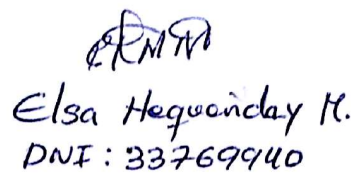 Elsa Hequanday M.
DNI: 33769940